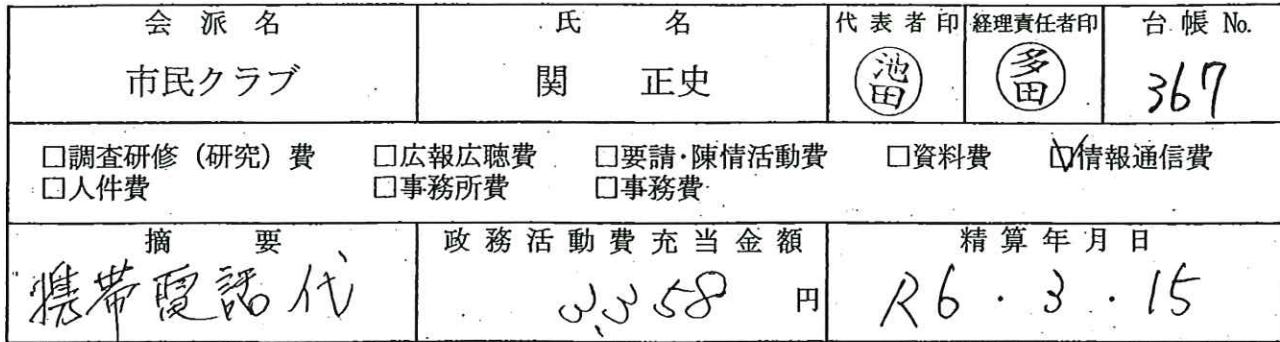 会派名 氏名 代表者印 経理責任者印 台帳No.
市民クラブ 関 正史 池田 多田 367
□調査研修（研究）費 □広報広聴費 □要請・陳情活動費 □資料費 ☑情報通信費
□人件費 □事務所費 □事務費
摘要 政務活動費充当金額 精算年月日
携帯電話代 3,358 円 R6・3・15